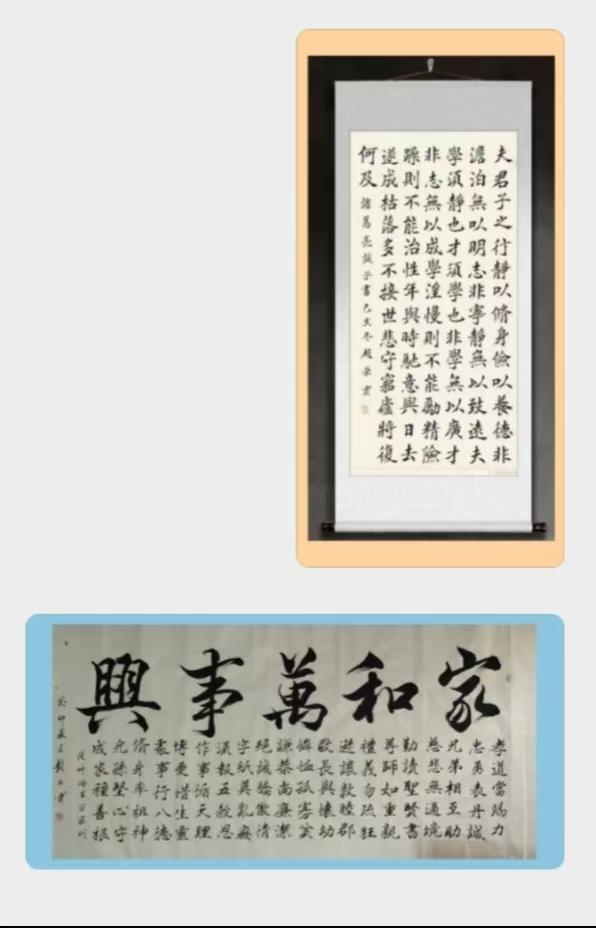 夫君子之行靜以脩身儉以養德非
澹泊無以明志非寧靜無以致遠夫
學須靜也才須學也非學無以廣才
非志無以成學淫慢則不能勵精險
躁則不能治性年與時馳意與日去
遂成枯落多不接世悲守窮廬將復
何及
諸葛亮誡子書己亥冬趙榮雲
家和萬事興
孝道當竭力
忠勇表丹誠
兄弟相互助
慈悲無過境
勤讀聖賢書
尊師如重親
禮義勿疏狂
遜讓敦睦鄰
敬長與懷幼
憐恤孤寡貧
謙恭尚廉潔
絕誡驕傲情
字紙莫亂廢
須報五穀恩
作事循天理
博愛惜生靈
處事行八德
脩身率祖神
兒孫堅心守
成家種善根